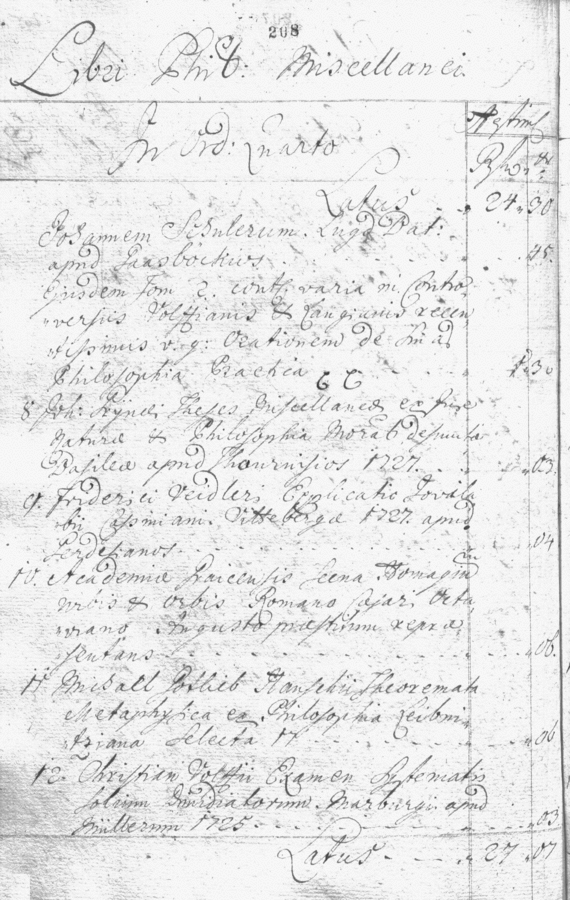 208
Libri Phil: Miscellanei
In Ord: Quarto
Æstim
Latus - 24 " 30
Johannem Schulerum. Lugd Bat:
apud Haasbockios " 45.
Ejusdem Tom 2. cont: varia in Contro-
"versiis Volffianis & Langianis recen
"tissimis v. g: Orationem de
Philosophia Practica 30
8 Joh: Theses Miscellaneæ ex Jure
Naturæ & Philosophia Morali
Basileæ apud Thournisios 1727. " 03.
9. Friderici Veidleri Explicatio Jovila
bii Cassiniani. Vittebergæ 1727. apud
" 04
10. Academiæ Scena Homagium
urbis & orbis Romano Cæsari Octa
"viano Augusto præstitum repræ
"sentans " 06.
11 Michaël Gotlieb Hanschii Theoremata
Metaphysica ex Philosophia Leibni-
"tziana Selecta 17 " 06
12. Christian Volffii Examen Systematis
Marburgi apud
Müllerum 1725 " 03
Latus - " 27 " 07